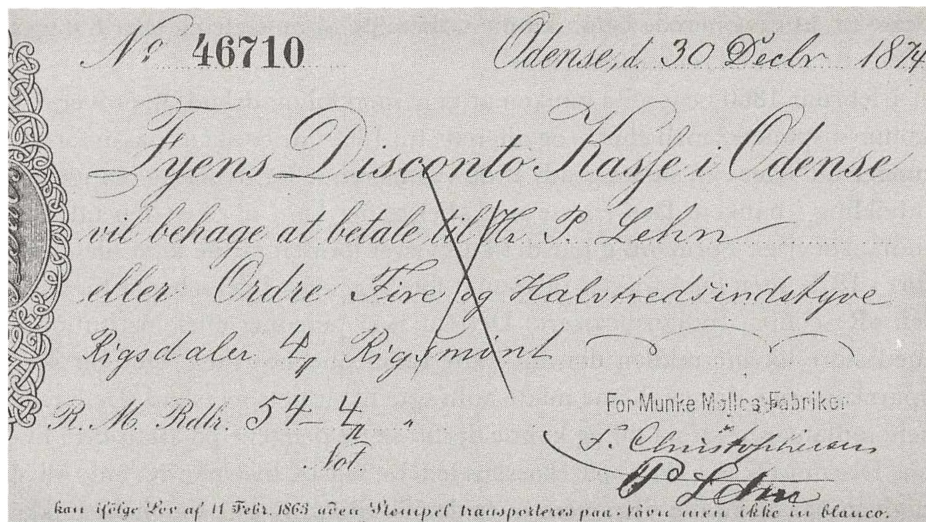 No 46710 Odense, d. 30 Decbr 1874
Fyens Disconto Kasse i Odense
vil behage at betale til Hr P. Lehn
eller Ordre Fire og Halvtredsindstyve
Rigsdaler 4 Rigsmønt
R. M. Rdlr. 54-4
Not.
For Munke Mølles Fabriker
F. Christophersen
P Lehn
kan ifølge Lov af 11 Febr. 1863 uden Stempel transporteres paa Navn men ikke in blanco.